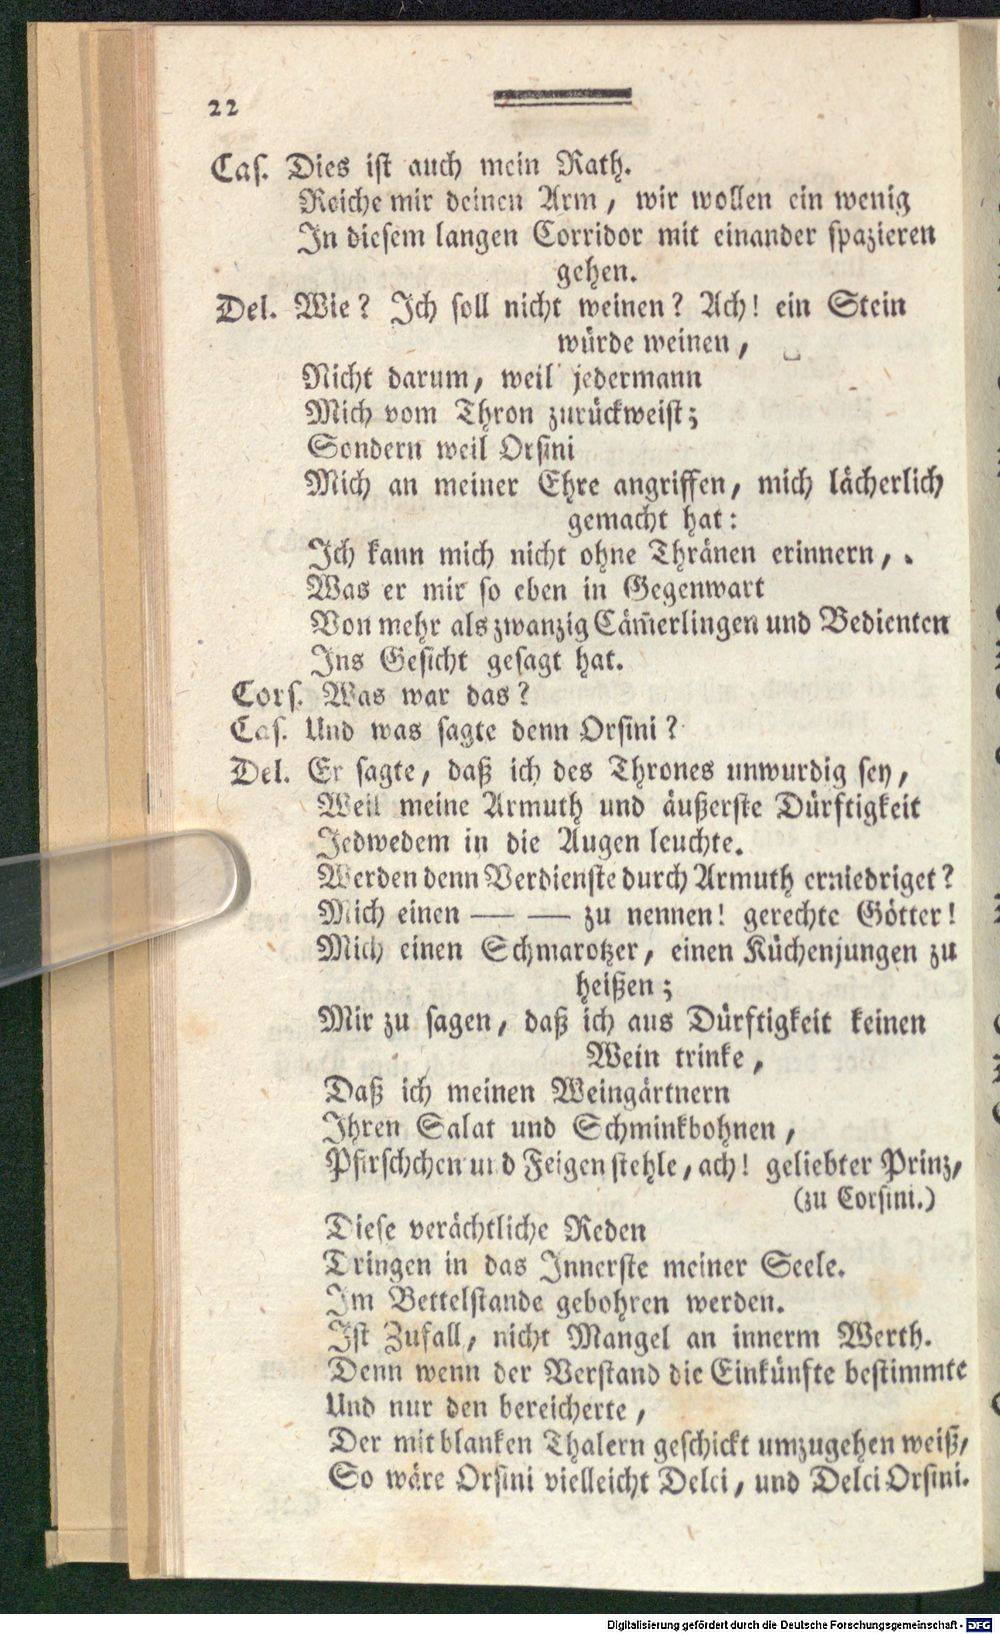 22
Cas. Dies ist auch mein Rath.
Reiche mir deinen Arm, wir wollen ein wenig
In diesem langen Corridor mit einander spazieren
gehen.
Del. Wie? Ich soll nicht weinen? Ach! ein Stein
würde weinen,
Nicht darum, weil jedermann
Mich vom Thron zurückweist;
Sondern weil Orsini
Mich an meiner Ehre angriffen, mich lächerlich
gemacht hat:
Ich kann mich nicht ohne Thränen erinnern,
Was er mir so eben in Gegenwart
Von mehr als zwanzig Cäm̃erlingen und Bedienten
Ins Gesicht gesagt hat.
Cors. Was war das?
Cas. Und was sagte denn Orsini?
Del. Er sagte, daß ich des Thrones unwurdig sey,
Weil meine Armuth und äußerste Dürftigkeit
Jedwedem in die Augen leuchte.
Werden denn Verdienste durch Armuth erniedriget?
Mich einen — — zu nennen! gerechte Götter!
Mich einen Schmarotzer, einen Küchenjungen zu
heißen;
Mir zu sagen, daß ich aus Dürftigkeit keinen
Wein trinke,
Daß ich meinen Weingärtnern
Ihren Salat und Schminkbohnen,
Pfirschchen und Feigen stehle, ach! geliebter Prinz,
(zu Corsini.)
Diese verächtliche Reden
Tringen in das Innerste meiner Seele.
Im Bettelstande gebohren werden.
Ist Zufall, nicht Mangel an innerm Werth.
Denn wenn der Verstand die Einkünfte bestimmte
Und nur den bereicherte,
Der mit blanken Thalern geschickt umzugehen weiß,
So wäre Orsini vielleicht Delci, und Delci Orsini.
Digitalisierung gefördert durch die Deutsche Forschungsgemeinschaft - DFG